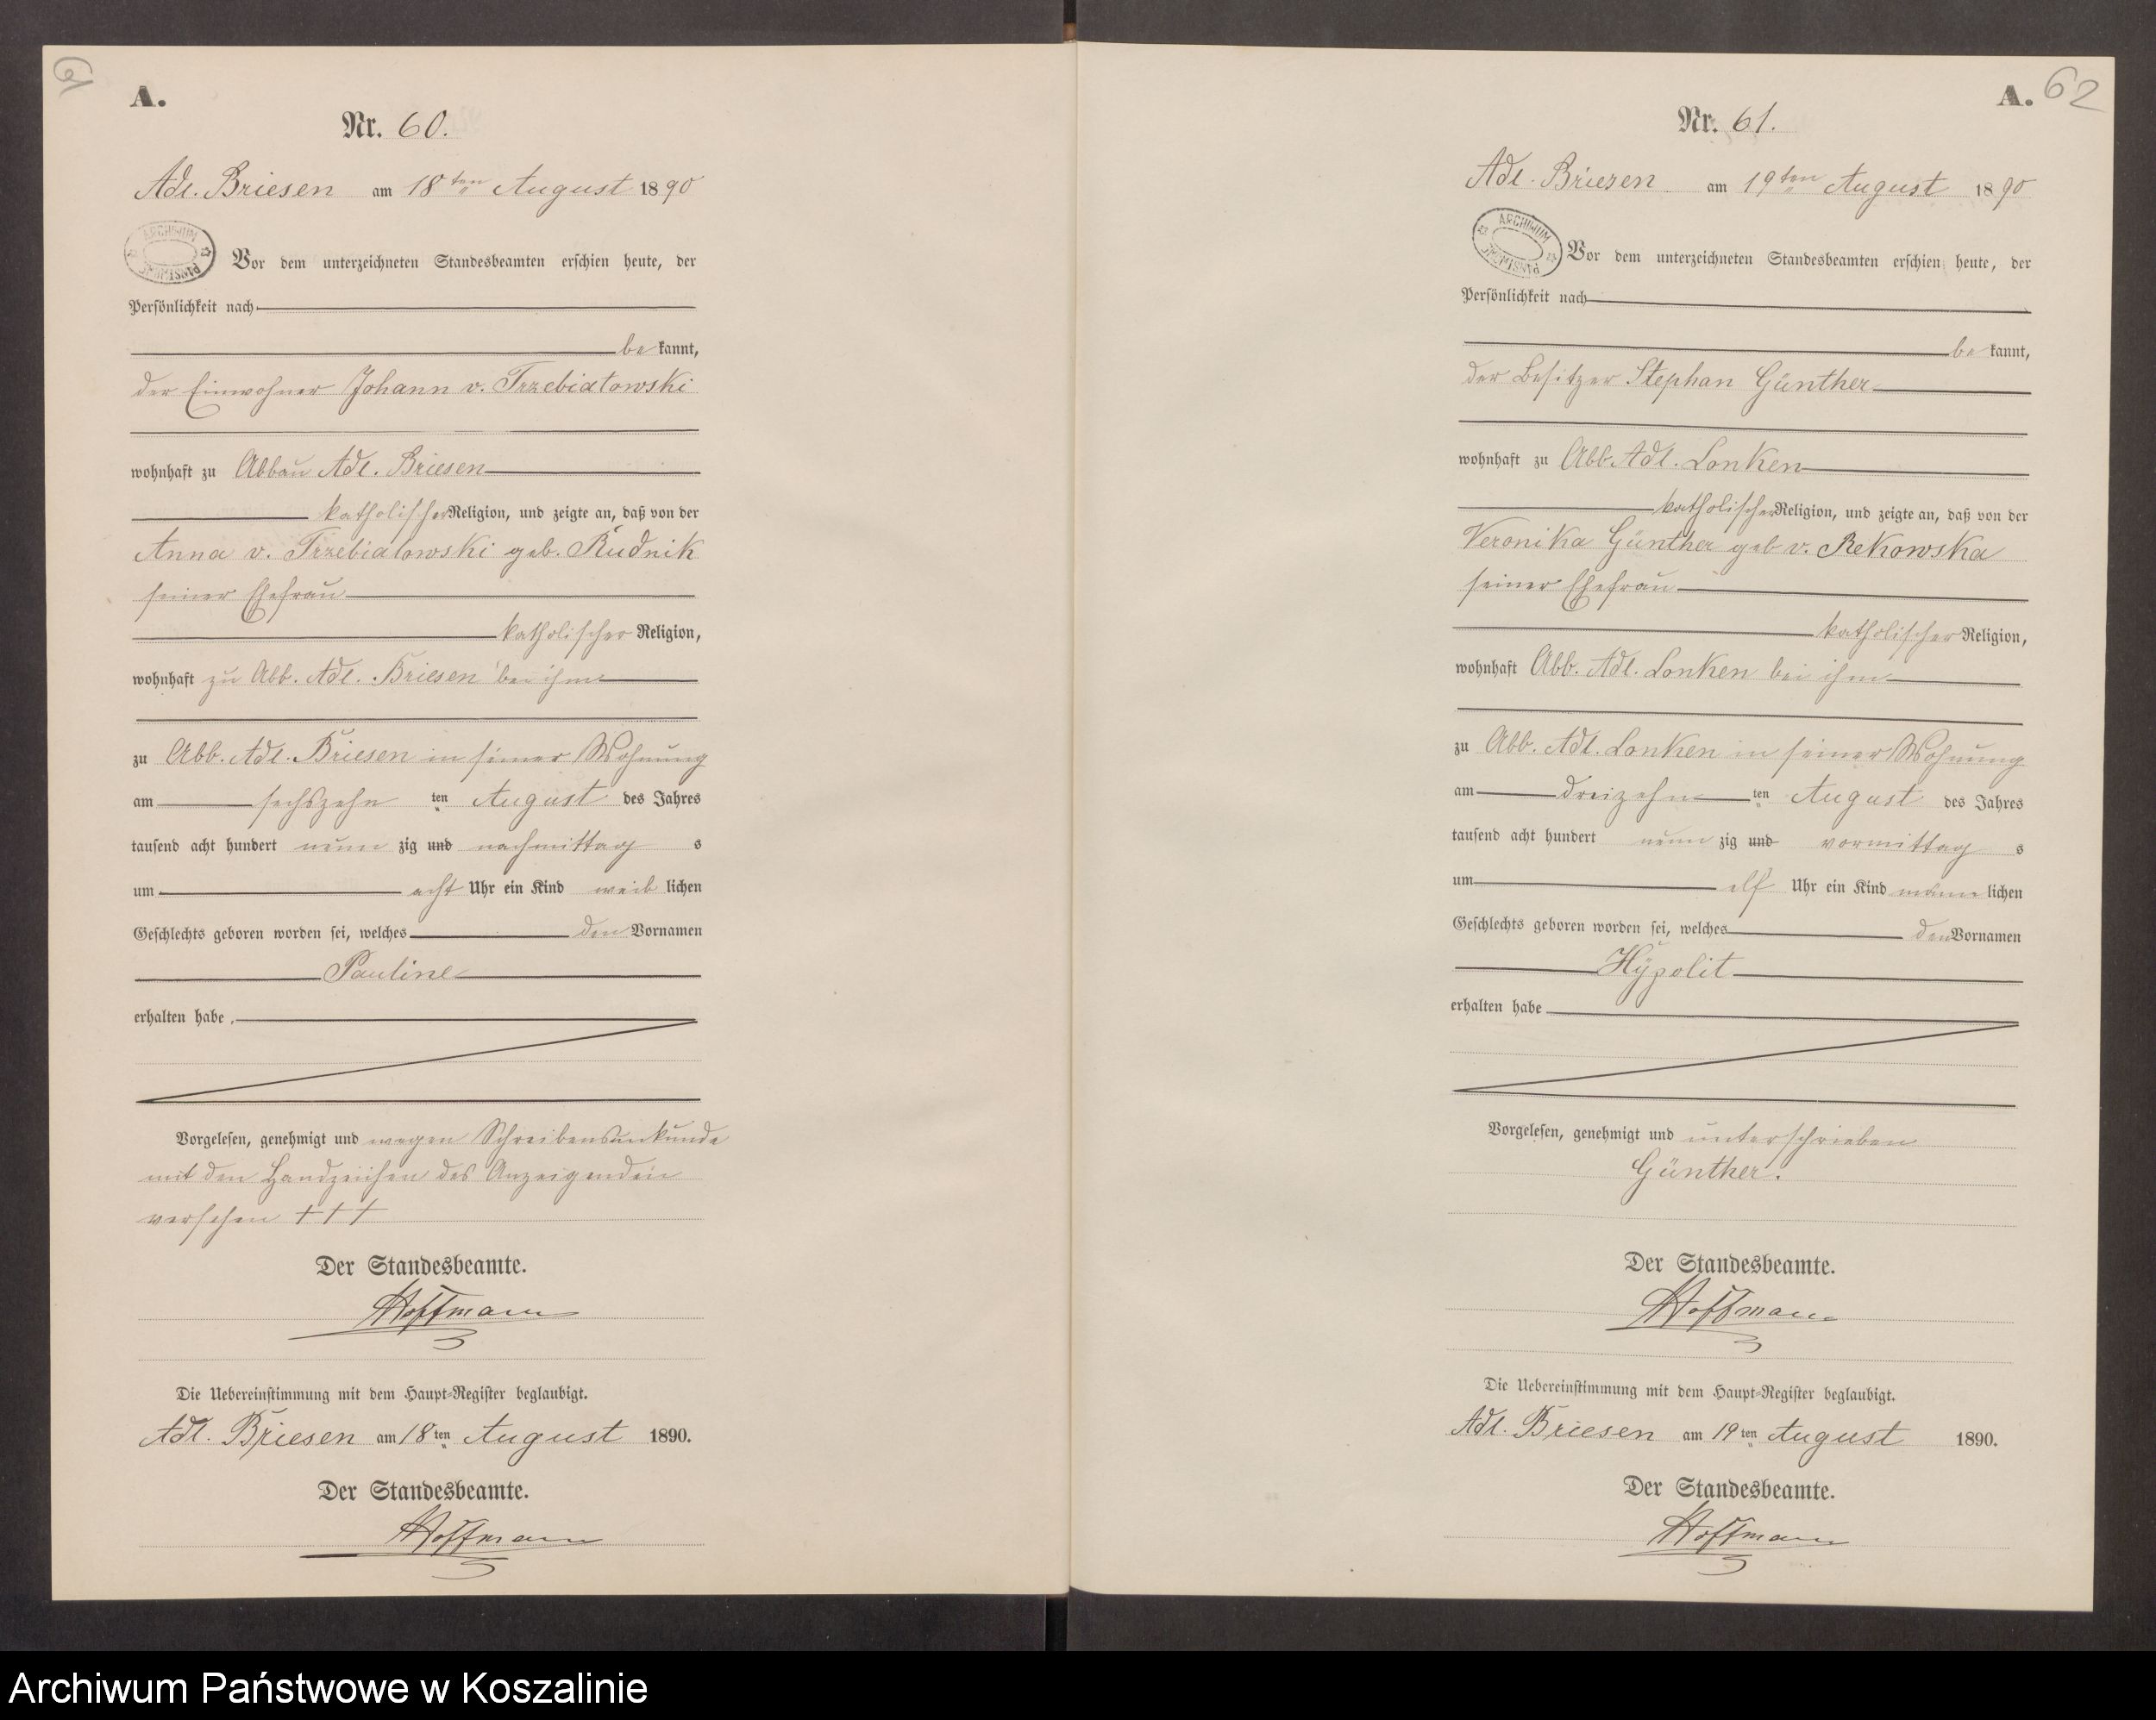 61
A.
Nr. 60.
Adl. Briesen am 18ten August 1890
ARCHIWUM PAŃSTWOWE
Vor dem unterzeichneten Standesbeamten erschien heute, der
Persönlichkeit nach
bekannt,
der Einwohner Johann v. Trzebiatowski
wohnhaft zu Abbau Adl. Briesen
katholischer Religion, und zeigte an, daß von der
Anna v. Trzebiatowski geb. Rudnik
seiner Ehefrau
katholischer Religion,
wohnhaft zu Abb. Adl. Briesen bei ihm
zu Abb. Adl. Briesen in seiner Wohnung
am sechszehn ten August des Jahres
tausend acht hundert neun zig und nachmittag s
um acht Uhr ein Kind weib lichen
Geschlechts geboren worden sei, welches den Vornamen
Pauline
erhalten habe.
Vorgelesen, genehmigt und wegen Schreibensunkunde
mit den Handzeichen des Anzeigenden
versehen +++
Der Standesbeamte.
Hoffmann
Die Uebereinstimmung mit dem Haupt-Register beglaubigt.
Adl. Briesen am 18ten August 1890.
Der Standesbeamte.
Hoffmann
A. 62
Nr. 61.
Adl. Briesen am 19ten August 1890
ARCHIWUM PAŃSTWOWE
Vor dem unterzeichneten Standesbeamten erschien heute, der
Persönlichkeit nach
bekannt,
der Besitzer Stephan Günther
wohnhaft zu Abb. Adl. Lonken
katholischer Religion, und zeigte an, daß von der
Veronika Günther geb v. Rekowska
seiner Ehefrau
katholischer Religion,
wohnhaft Abb. Adl. Lonken bei ihm
zu Abb. Adl. Lonken in seiner Wohnung
am dreizehn ten August des Jahres
tausend acht hundert neun zig und vormittag s
um elf Uhr ein Kind männ lichen
Geschlechts geboren worden sei, welches den Vornamen
Hÿpolit
erhalten habe
Vorgelesen, genehmigt und unterschrieben
Günther.
Der Standesbeamte.
Hoffmann
Die Uebereinstimmung mit dem Haupt-Register beglaubigt.
Adl. Briesen am 19ten August 1890.
Der Standesbeamte.
Hoffmann
Archiwum Państwowe w Koszalinie